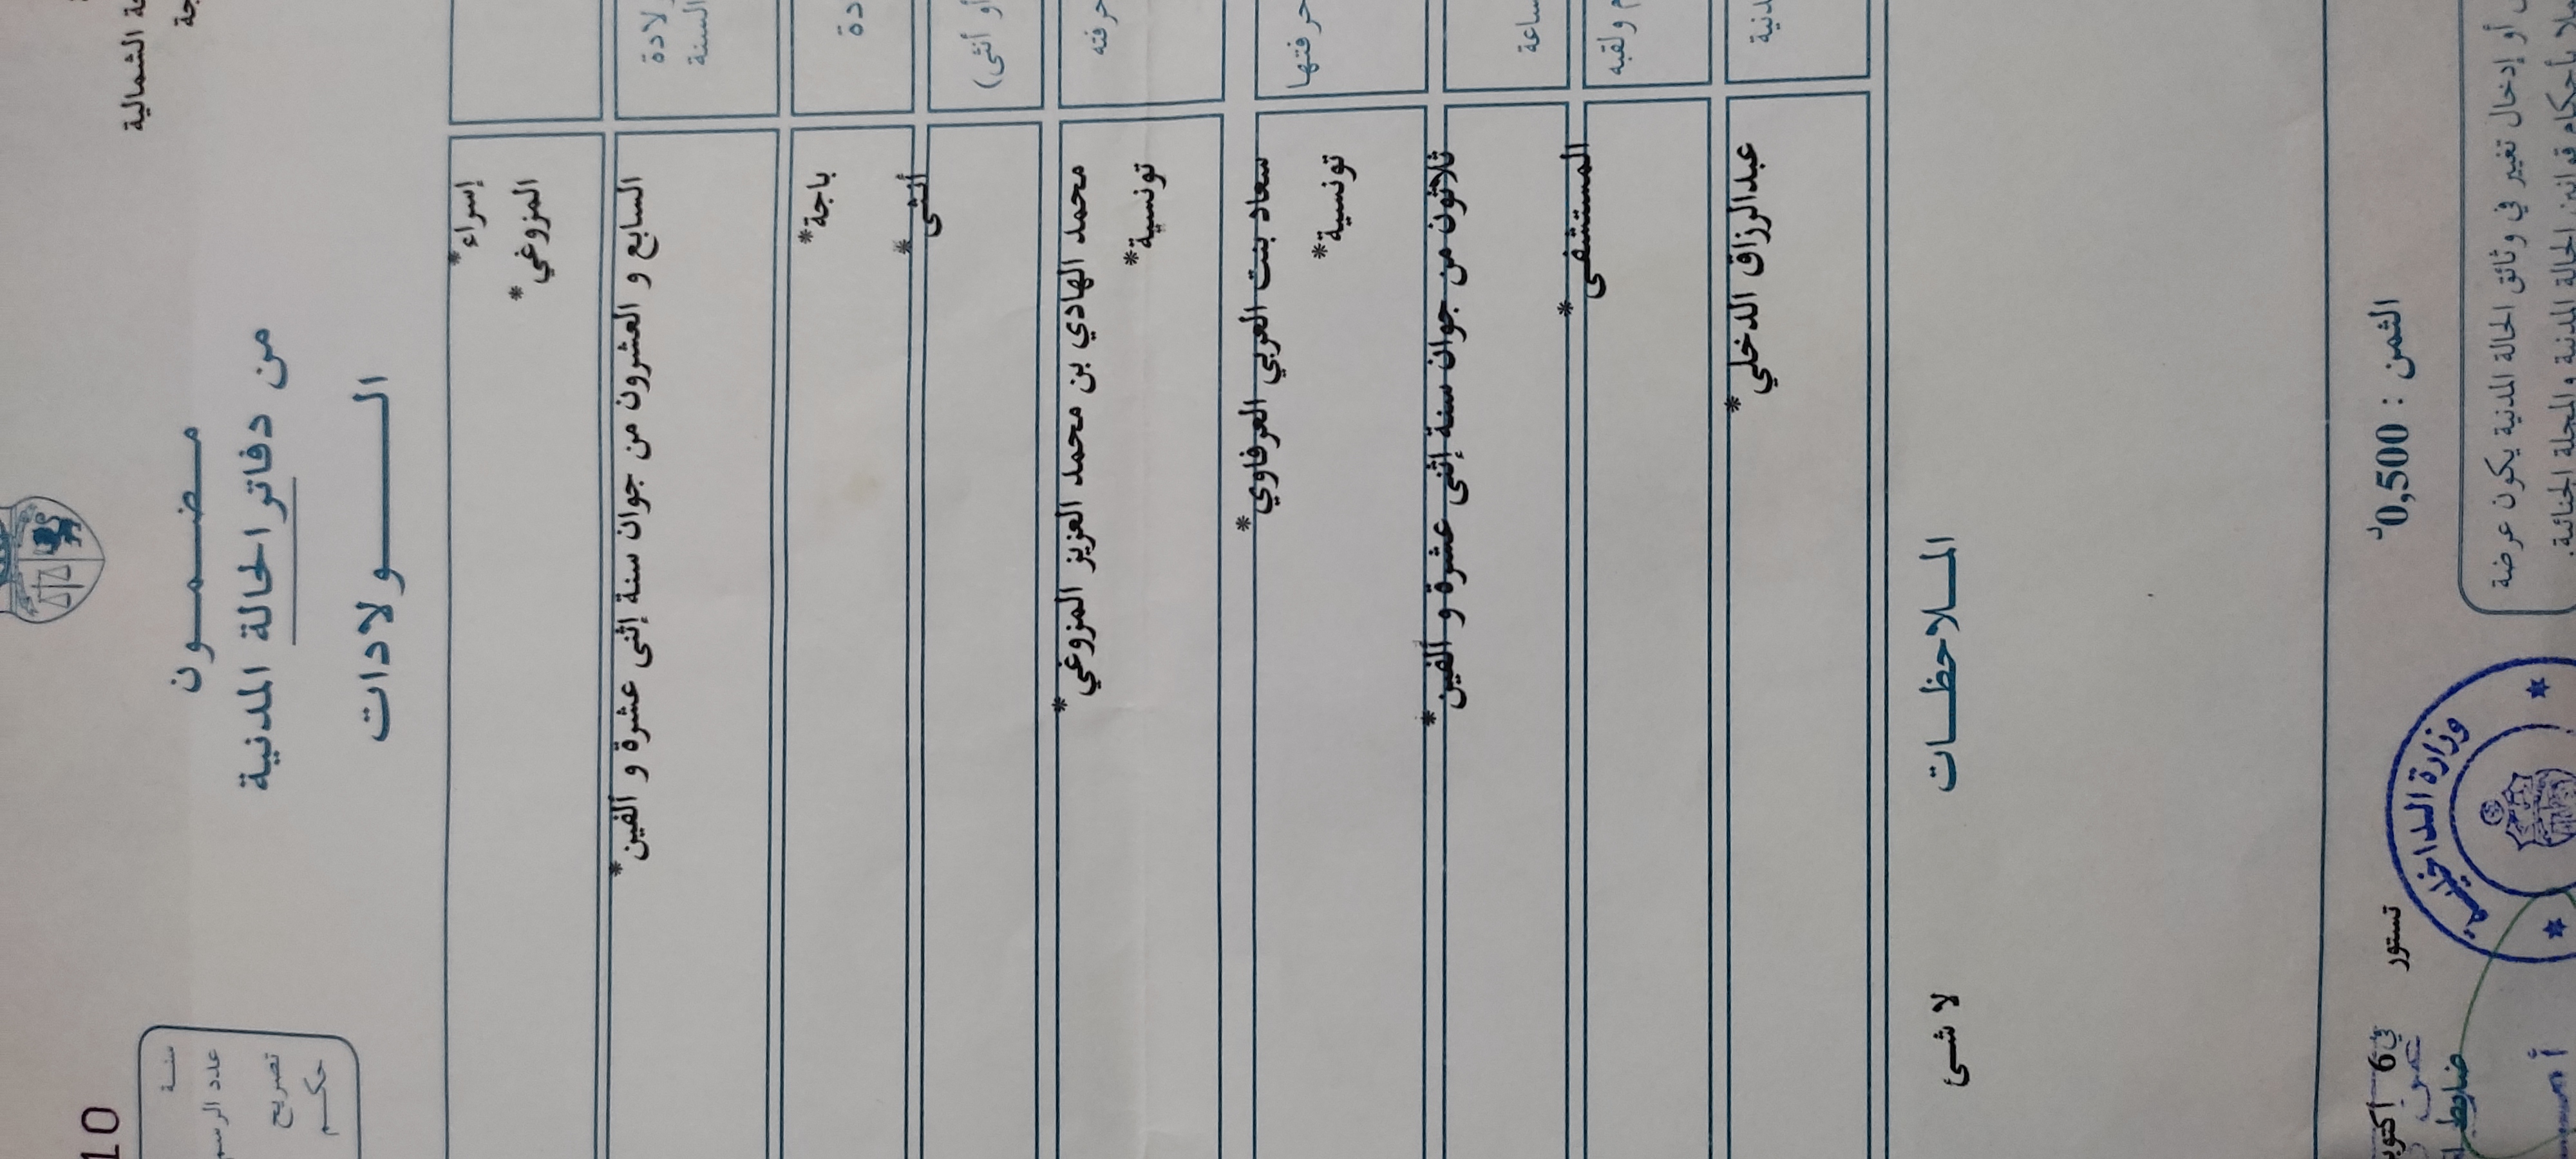 ة الشمالية
جة
10
مضمون
من دفاتر الحالة المدنية
الولادات
سنة
عدد الرسم
تصريح
حكم
إسراء*
المزوغي*
لادة
السنة
السابع و العشرون من جوان سنة إثنى عشرة و ألفين*
دة
باجة*
أو أنثى)
أنثى*
حرفته
محمد الهادي بن محمد العزيز المزوغي*
تونسية*
حرفتها
سعاد بنت العربي العرفاوي*
تونسية*
ساعة
ثلاثون من جوان سنة إثنى عشرة و ألفين*
م ولقبه
المستشفى*
دنية
عبدالرزاق الدخلي*
الملاحظات
لا شئ
الثمن : 0,500د
تستور في 6 أكتوبر
وزارة الداخلية
ضابط
أو إدخال تغيير في وثائق الحالة المدنية يكون عرضة
لا بأحكام قوانين الحالة المدنية والمجلة الجنائية.